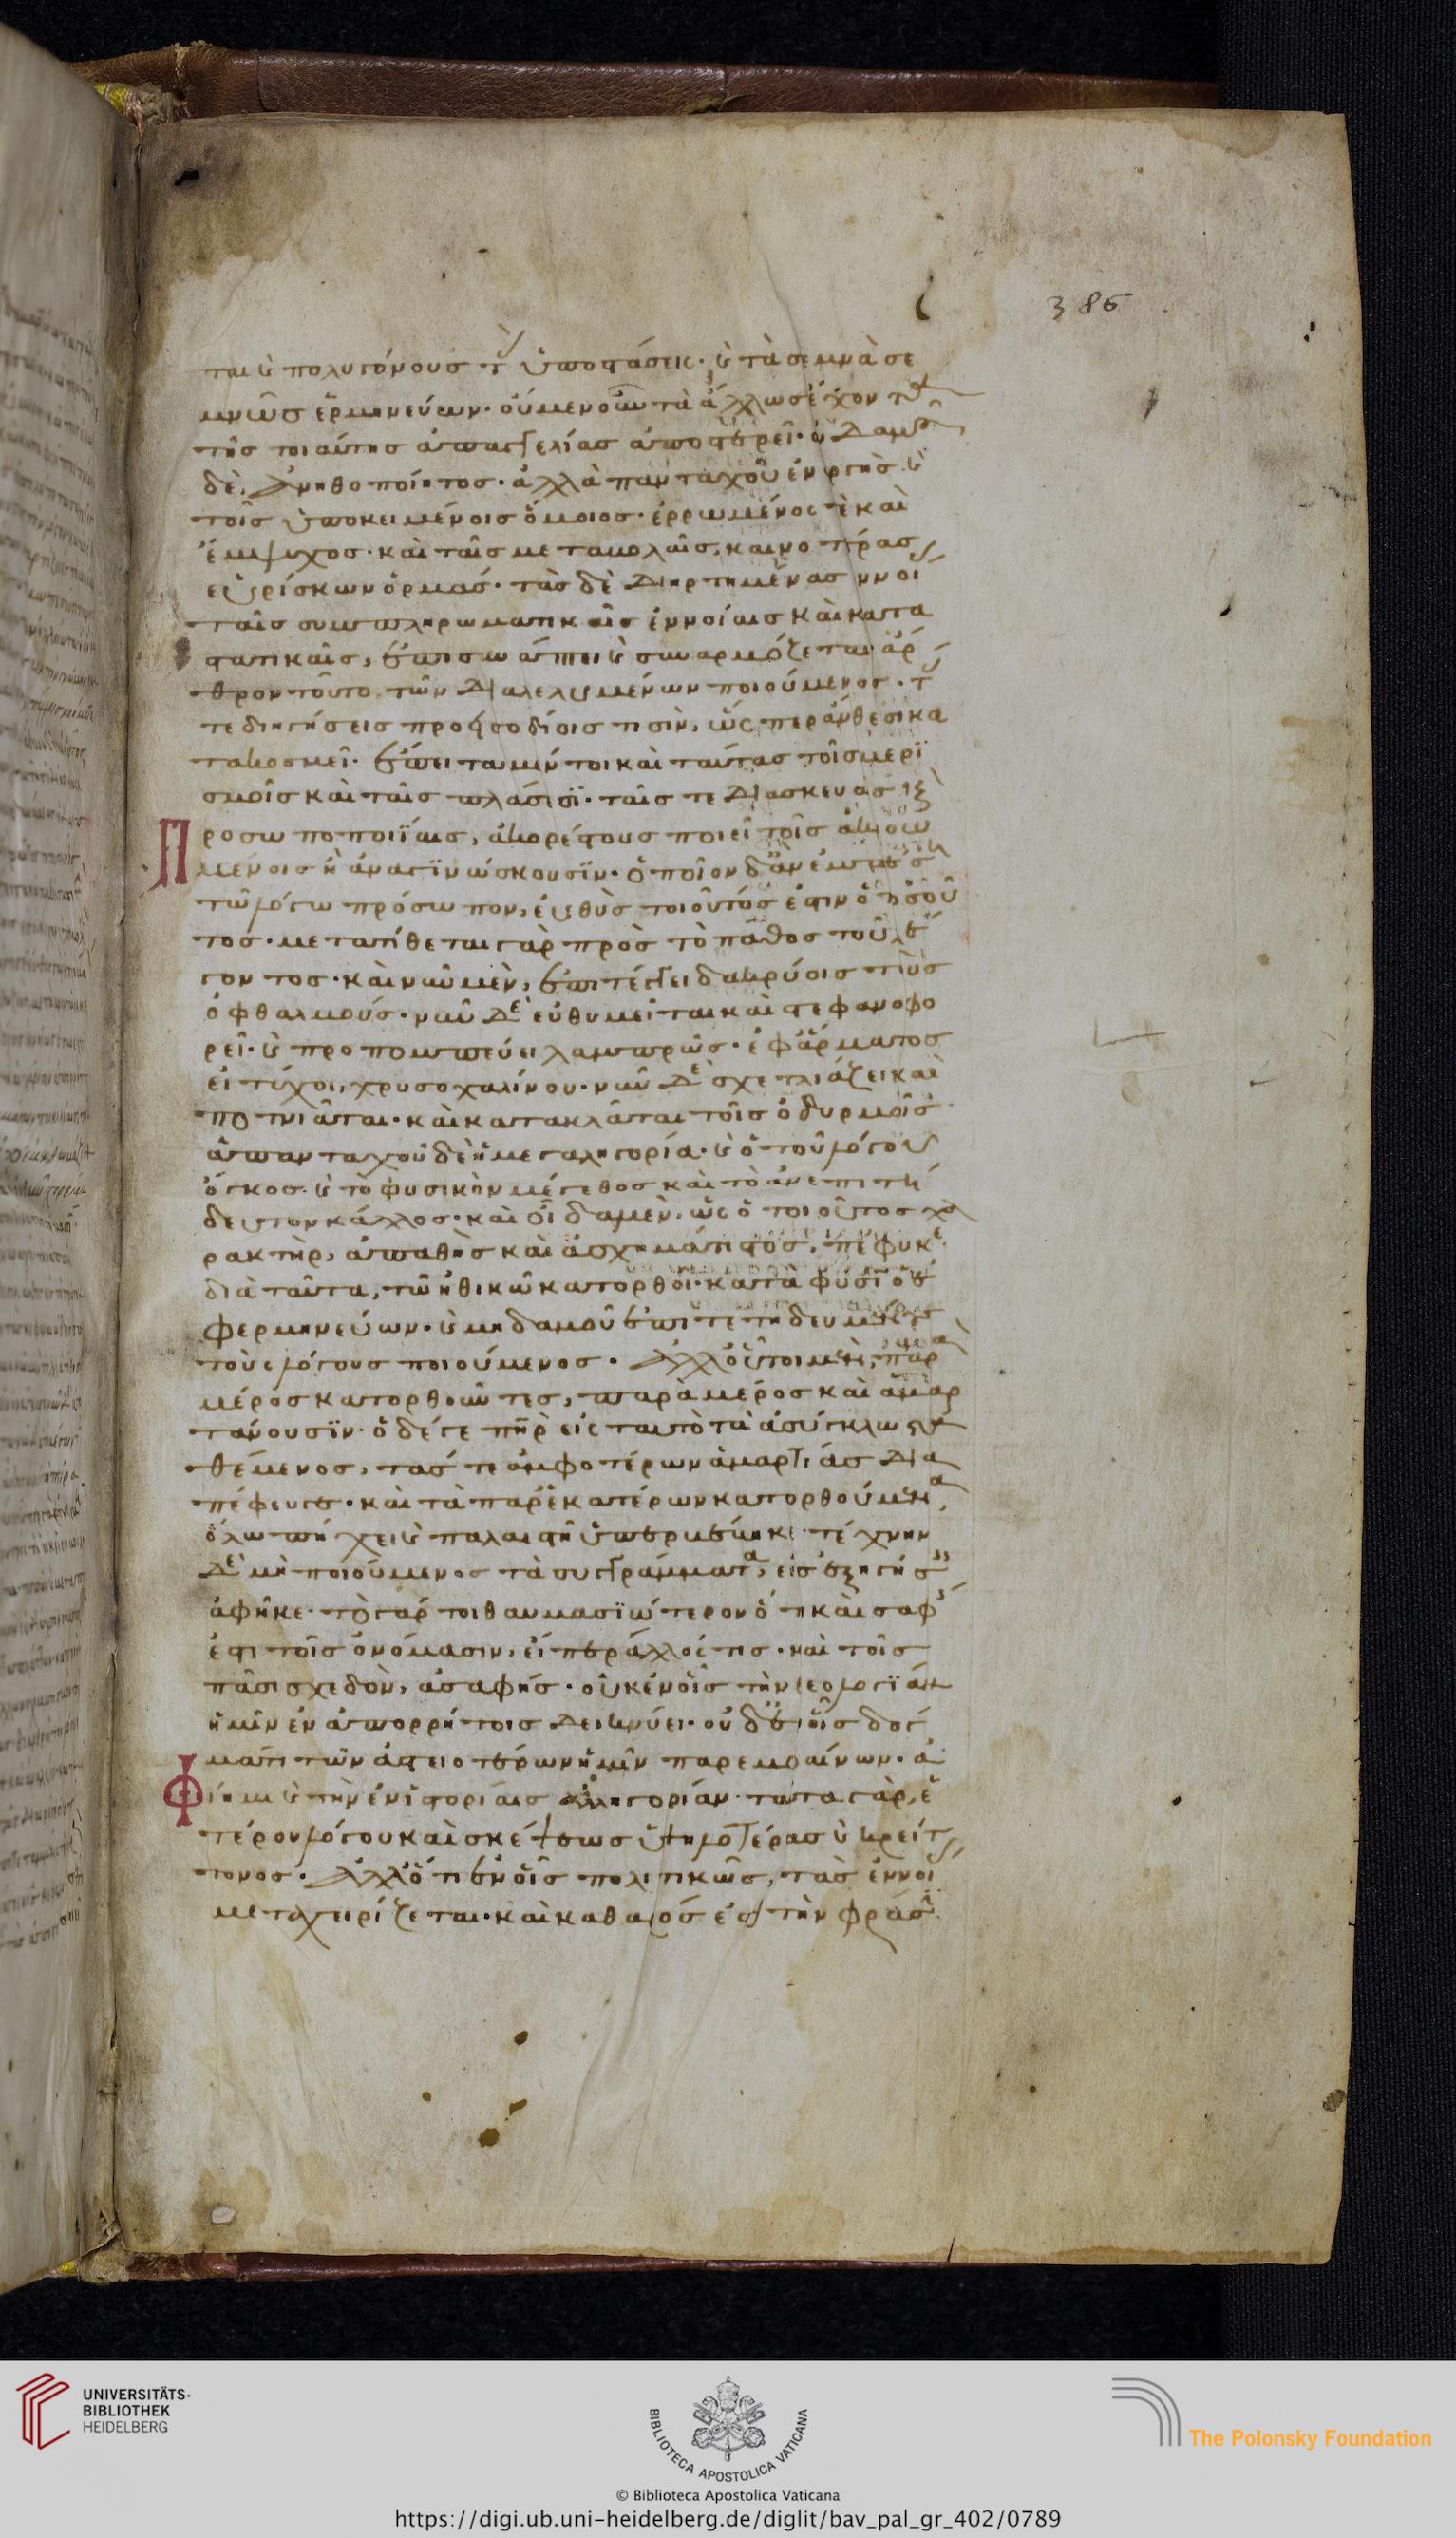 386
ται καὶ πολυγόνους τὰς ὑποστάσεις· καὶ τὰ σεμνὰ σε
μνῶς ἑρμηνεύων· οὐμενοῦν τὰ ἄλλως ἔχοντα
τῆς τοιαύτης ἀπαγγελίας ἀποστερεῖ·
δὲ, ἀνηθοποίητος· ἀλλὰ πανταχοῦ ἐναργὴς καὶ
τοῖς ὑποκειμένοις ὅμοιος· ἐρρωμένος τὲ καὶ
ἔμψυχος· καὶ ταῖς μεταβολαῖς, καινοτέρας
εὑρίσκων ὁρμάς· τὰς δὲ διηρτημένας ἐννοίας
ταῖς συμπληρωματικαῖς ἐννοίαις καὶ κατα
στατικαῖς, ἐπισυνάπτει καὶ συναρμόζεται ἄρ
θρον τοῦτο τῶν διαλελυμένων ποιούμενος· τὰς
τε διηγήσεις προσοδίοις τισὶν, ὥσπερ ἄνθεσι κα
τακοσμεῖ· ἔπειτα μέντοι καὶ ταύτας τοῖς μερι
σμοῖς καὶ ταῖς πλάσεσι· ταῖς τε διασκευαῖς καὶ
Προσωποποιΐαις, ἀκορέστους ποιεῖ τοῖς ἀκροω
μένοις ἢ ἀναγινώσκουσιν· ὁποῖον δ' ἂν
τῷ λόγῳ πρόσωπον, εὐθὺς τοιοῦτός ἐστιν ὁ
τος· μετατίθεται γὰρ πρὸς τὸ πάθος τοῦ λέ
γοντος· καὶ νῦν μὲν, ἐπιτέγγει δακρύοις τοὺς
ὀφθαλμούς· νῦν δὲ εὐθυμεῖται καὶ στεφανοφο
ρεῖ· καὶ προπομπεύει λαμπρῶς· ἐφ' ἅρματος
εἰ τύχοι, χρυσοχαλίνου· νῦν δὲ σχετλιάζει καὶ
ποτνιᾶται· καὶ κατακλᾶται τοῖς ὀδυρμοῖς
ἁπανταχοῦ δὲ ἡ μεγαληγορία· καὶ ὁ τοῦ λόγου
ὄγκος· καὶ τὸ φυσικὸν μέγεθος καὶ τὸ ἀνεπιτή
δευτον κάλλος· καὶ οἶδα μὲν, ὡς ὁ τοιοῦτος χα
ρακτὴρ, ἀπαθὴς καὶ ἀσχημάτιστος πέφυκε·
διὰ ταῦτα, τῶ ἠθικῶ κατορθοῖ· κατὰ φύσιν
φερμηνεύων· καὶ μηδαμοῦ ἐπιτετηδευμένους
τοὺς λόγους ποιούμενος· ἄλλοι μὲν, παρὰ
μέρος κατορθοῦντες, παρὰ μέρος καὶ ἁμαρ
τάνουσιν· ὁ δέ γε πατὴρ εἰς ταυτὸ τὰ ἀσύγκλωστα
θέμενος, τάς τε ἀμφοτέρων ἁμαρτίας δια
πέφευγε· καὶ τὰ παρ' ἑκατέρων κατορθούμενα,
ὅλῳ πήχει καὶ παλαιστῆ ὑπερβέβηκε· τέχνην
δὲ μὴ ποιούμενος τὰ συγγράμματα, εἰς ἐξηγήσεις
ἀφῆκε· τὸ γάρ τοι θαυμασιώτερον ὅτι καὶ σαφής
ἐστι τοῖς ὀνόμασιν, εἴπερ ἄλλός τις· καὶ τοῖς
πᾶσι σχεδὸν, ἀσαφής· οὐκ ἐν οἷς τὴν θεολογίαν
ἡμῖν ἐν ἀπορρήτοις δεικνύει· οὐδ' ἐν οἷς δόγ
μασι τῶν ἀστειοτέρων ἡμῖν παρεμβαίνων· ἀ
Φίημι καὶ τὴν ἐν ἱστορίαις ἀλληγορίαν· ταῦτα γὰρ, ἑ
τέρου λόγου καὶ σκέψεως ὑψηλοτέρας καὶ κρείτ
τονος· ἀλλ' ὅτι ἐν οἷς πολιτικῶς, τὰς ἐννοίας
μεταχειρίζεται· καὶ καθαρός ἐστι τὴν φράσιν·
UNIVERSITÄTS-
BIBLIOTHEK
HEIDELBERG
BIBLIOTECA APOSTOLICA VATICANA
The Polonsky Foundation
© Biblioteca Apostolica Vaticana
https://digi.ub.uni-heidelberg.de/diglit/bav_pal_gr_402/0789